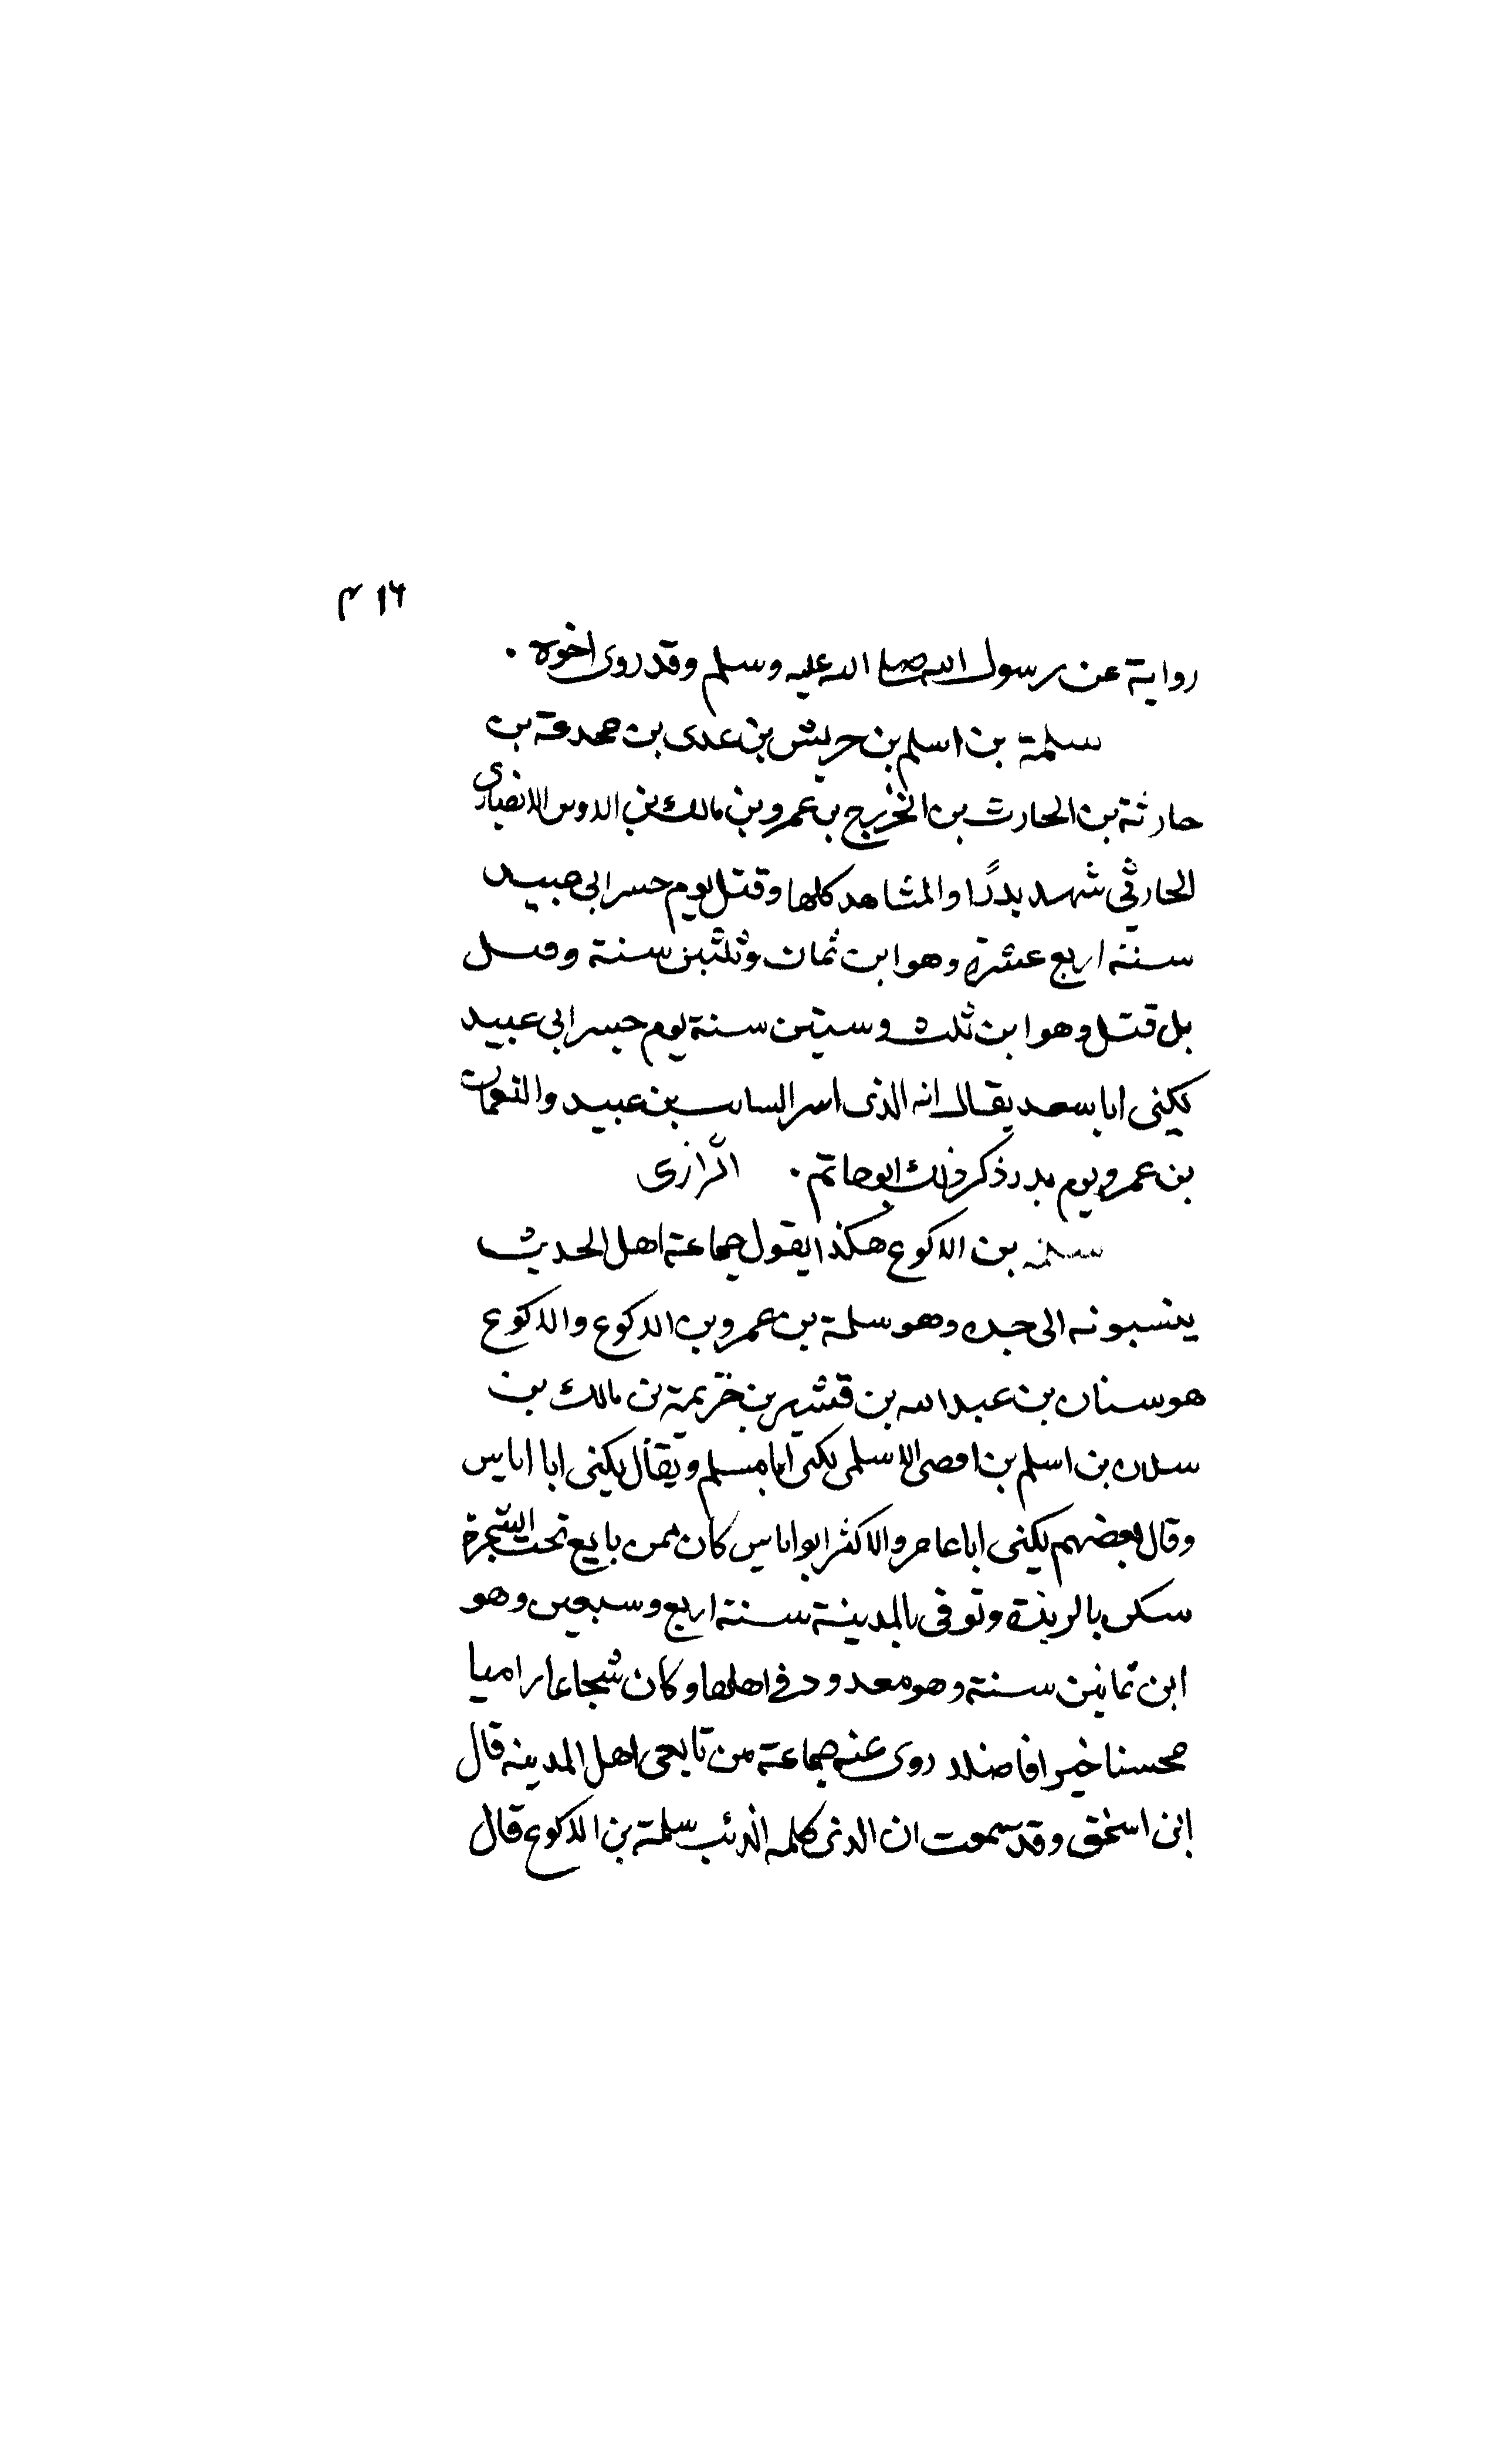 ٤١٦
رواية عن رسول الله صلى الله عليه وسلم وقد روى اخوه .
سلمة بن اسلم بن حريش بن عدى بن مجدعة بن
حارثة بن الحارث بن الخزرج بن عمرو بن مالك بن الاوس الانصارى
الحارثي شهد بدرًا والمشاهد كلها وقتل يوم جسر ابى عبيد
سنة اربع عشرة وهو ابن ثمان وثلثين سنة وقيل
بل قتل وهو ابن ثلث وستين سنة يوم جسر ابى عبيد
يكنى ابا سعد يقال انه الذى اسر السائب بن عبيد والنعمان
بن عمرو يوم بدر ذكر ذلك ابو حاتم . الرازى
سلمة بن الاكوع هكذا يقول جماعة اهل الحديث
ينسبونه الى جده وهو سلمة بن عمرو بن الاكوع والاكوع
هو سنان بن عبد الله بن قشير بن خزيمة بن مالك بن
سلامان بن اسلم بن افصى الاسلمى يكنى ابا مسلم ويقال يكنى ابا اياس
وقال بعضهم يكنى ابا عامر والاكثر ابو اياس كان ممن بايع تحت الشجرة
سكن بالربذة وتوفى بالمدينة سنة اربع وسبعين وهو
ابن ثمانين سنة وهو معدود في اهلها وكان شجاعا راميا
محسنا خيرا فاضلا روى عنه جماعة من تابعى اهل المدينة قال
ابن اسحق وقد سمعت ان الذى كلمه الذئب سلمة بن الاكوع قال